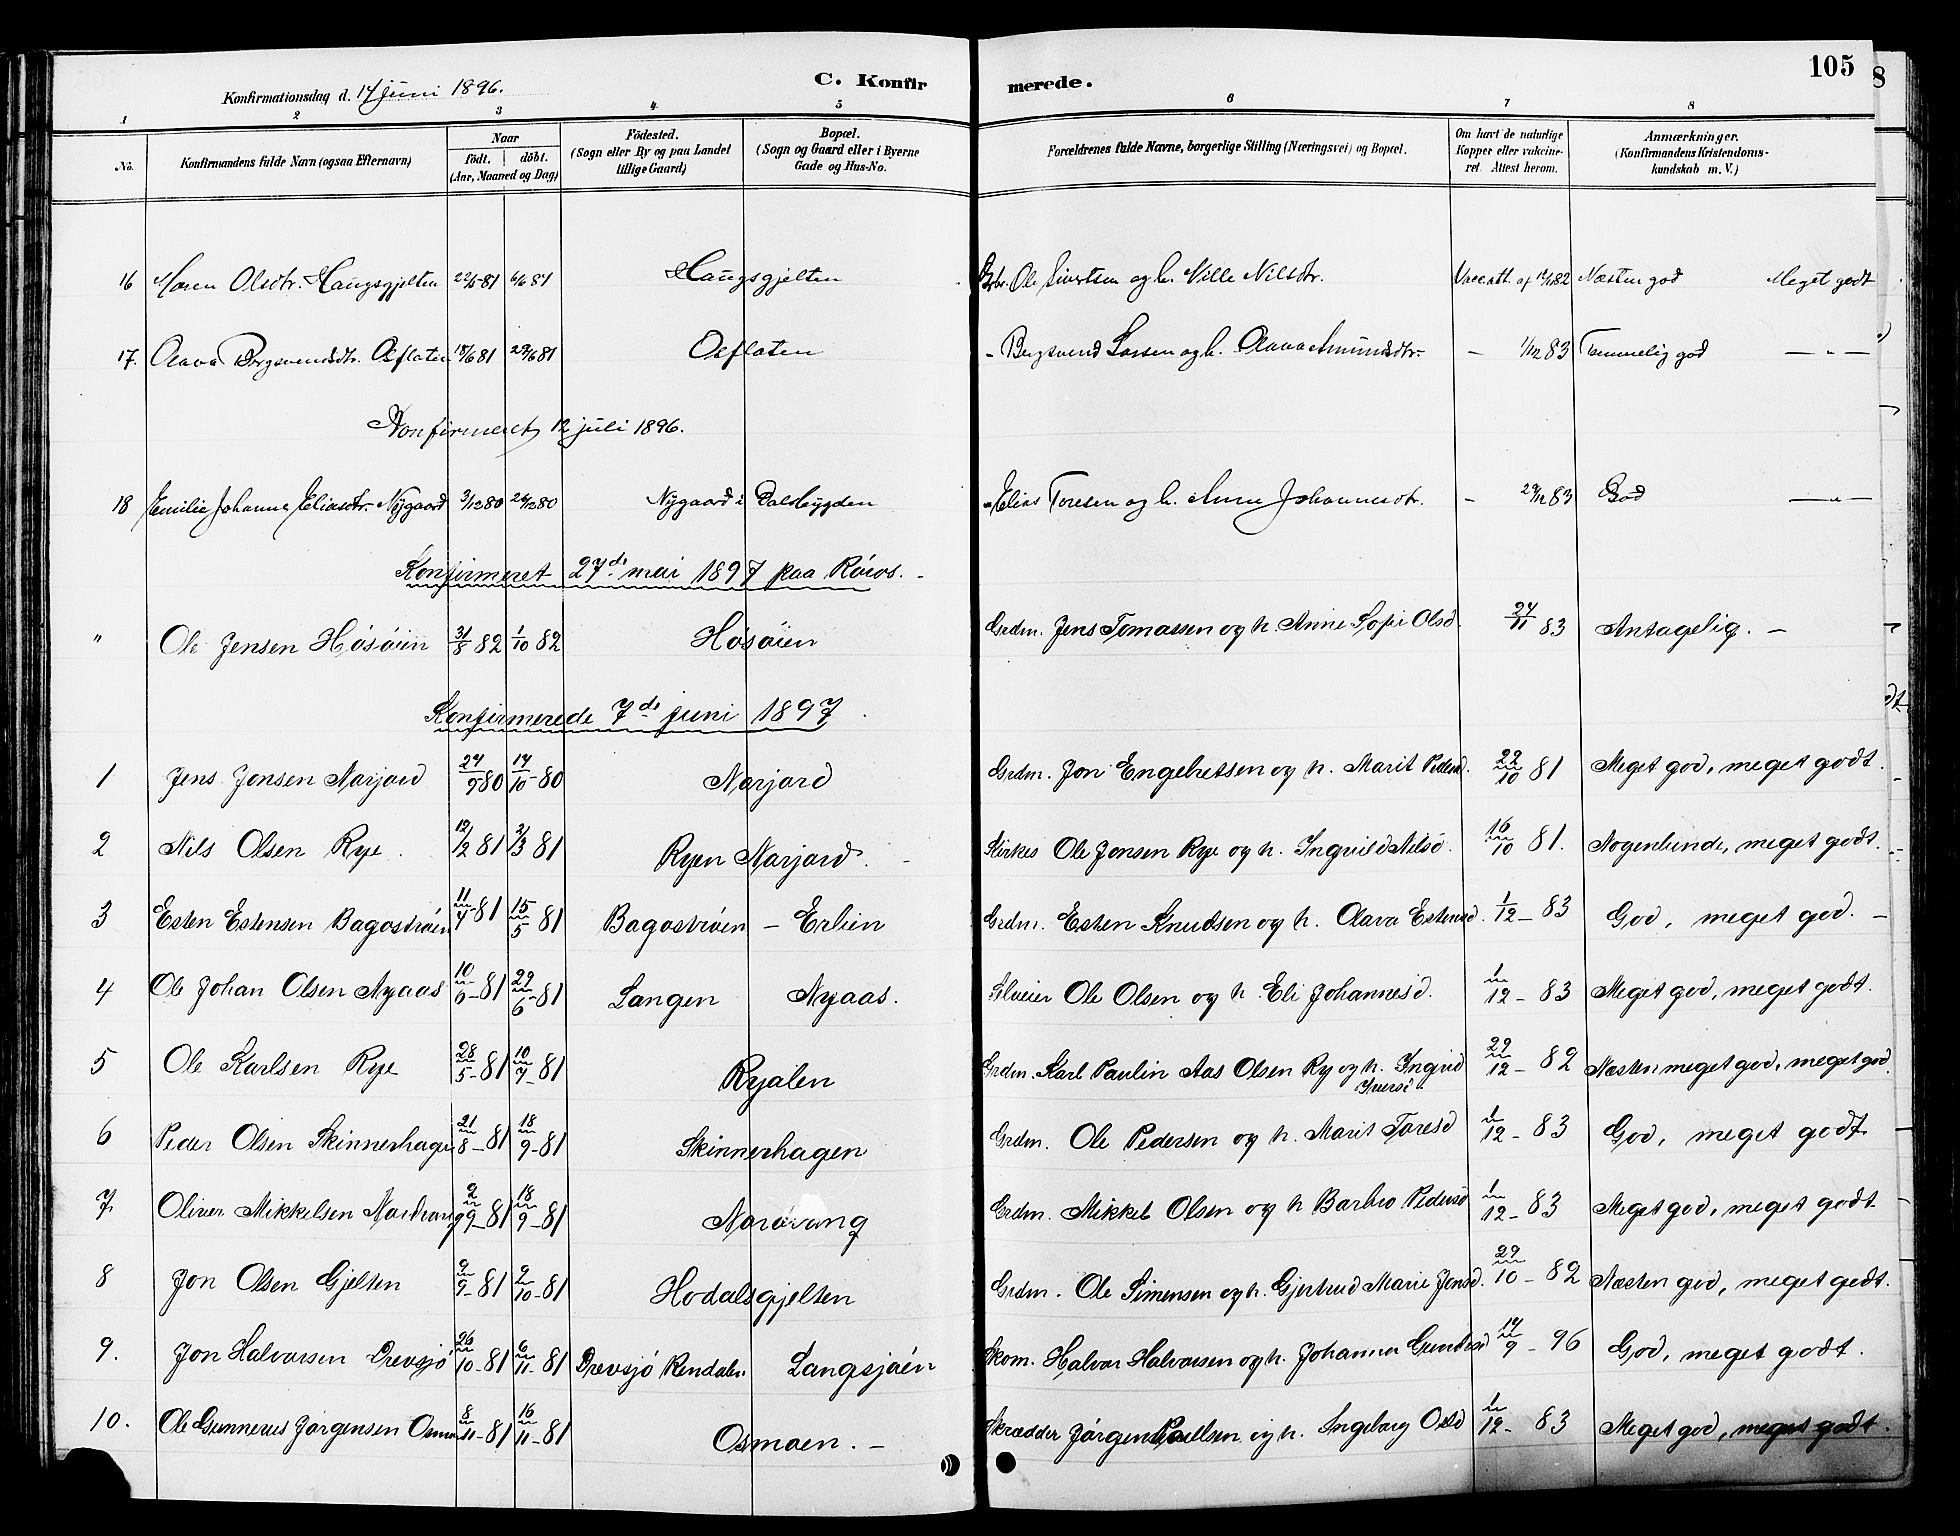 105
C. Konfir merede.
Konfirmationsdag d. 14 juni 1896.
1 2 3 4 5 6 7 8
No. Konfirmandens fulde Navn (ogsaa Efternavn) Naar födt. döbt. (Aar, Maaned og Dag) Födested. (Sogn eller By og paa Landet tillige Gaard) Bopæl. (Sogn og Gaard eller i Byerne Gade og Hus-No. Forældrenes fulde Navne, borgerlige Stilling (Næringsvei) og Bopæl. Om havt de naturlige Kopper eller vakcineret. Attest herom. Anmærkninger. (Konfirmandens Kristendomskundskab m. V.)
16 Maren Olsdtr. Haugsgjelten 22/5 81 6/6 81 Haugsgjelten Gbr. Ole Sivertsen og h. Ville Nilsdtr. Vacc.att. af 82 Næsten god Meget godt
17. Olava Bergsvendsdtr. Oeflaten 18/6 81 29/6 81 Oeflaten - Bergsvend Larsen og h. Olava Amundsdtr. - 1/12 83 Temmelig god — „ —
Konfirmeret 12 juli 1896.
18 Emilie Johanne Eliasdtr. Nygaard 3/12 80 26/12 80 Nygaard i Dalsbygden „ Elias Toresen og h. Anne Johannesdtr. - 29/12 83 God — „ —
Konfirmeret 27de mai 1897 paa Röros. -
" Ole Jensen Høsöien 31/8 82 1/10 82 Høsöien Grdm. Jens Tomassen og h. Anne Sofie Olsd. 24/11 83 Antagelig. -
Konfirmerede 7de juni 1897.
1 Jens Jonsen Narjord 24/9 80 14/10 80 Narjord Grdm. Jon Engebretsen og h. Marit Pedersd. 22/10 81 Meget god, meget godt.
2 Nils Olsen Rye. 12/2 81 2/3 81 Ryen Narjord. Kirkes Ole Jonsen Rye og h. Ingvild Nilsd. 16/10 81. Nogenlunde, meget godt.
3 Esten Estensen Bagaströen 11/4 81 15/5 81 Bagaströen - Erlien Grdm. Esten Knudsen og h. Olava Estensd. 1/12 - 83 God, meget god. -
4 Ole Johan Olsen Nyaas 10/6 - 81 29/6 - 81 Langen Nyaas. Selveier Ole Olsen og h. Eli Johannesd. 1/12 - 83 Meget god, meget godt.
5 Ole Karlsen Rye 28/5 - 81 10/7 - 81 Ryalen Grdm. Karl Paulin Aas Olsen Ry og h. Ingrid Iversd 29/12 - 82 Næsten meget god, meget god.
6 Peder Olsen Skinnerhagen 21/8 - 81 18/9 - 81 Skinnerhagen Grdm. Ole Pedersen og h. Marit Toresd 1/12 - 83 God, meget godt
7 Oliver Mikkelsen Nordvang 2/9 - 81 18/9 - 81 Nordvang Grdm. Mikkel Olsen og h Barbro Pedersd 1/12 - 83 Meget god, meget godt
8 Jon Olsen Gjelten 9/9 - 81 2/10 - 81 Hodalsgjelten Grdm. Ole Simensen og h. Gjertrud Marie Jonsd. 29/10 - 82 Næsten god, meget godt.
9. Jon Halvorsen Drevsjö 26/10 - 81 6/11 - 81 Drevsjö Rendalen Langsjöén Skom. Halvor Halvorsen og h. Johanna 14/9 - 96 God, meget godt.
10. Ole Gunnerus Jørgensen Osmoen 8/11 - 81 16/11 - 81 Osmoen. - Skrædder Jørgen Poullsen og h. Ingeborg Olsd 1/12 - 83 Meget god, meget godt.